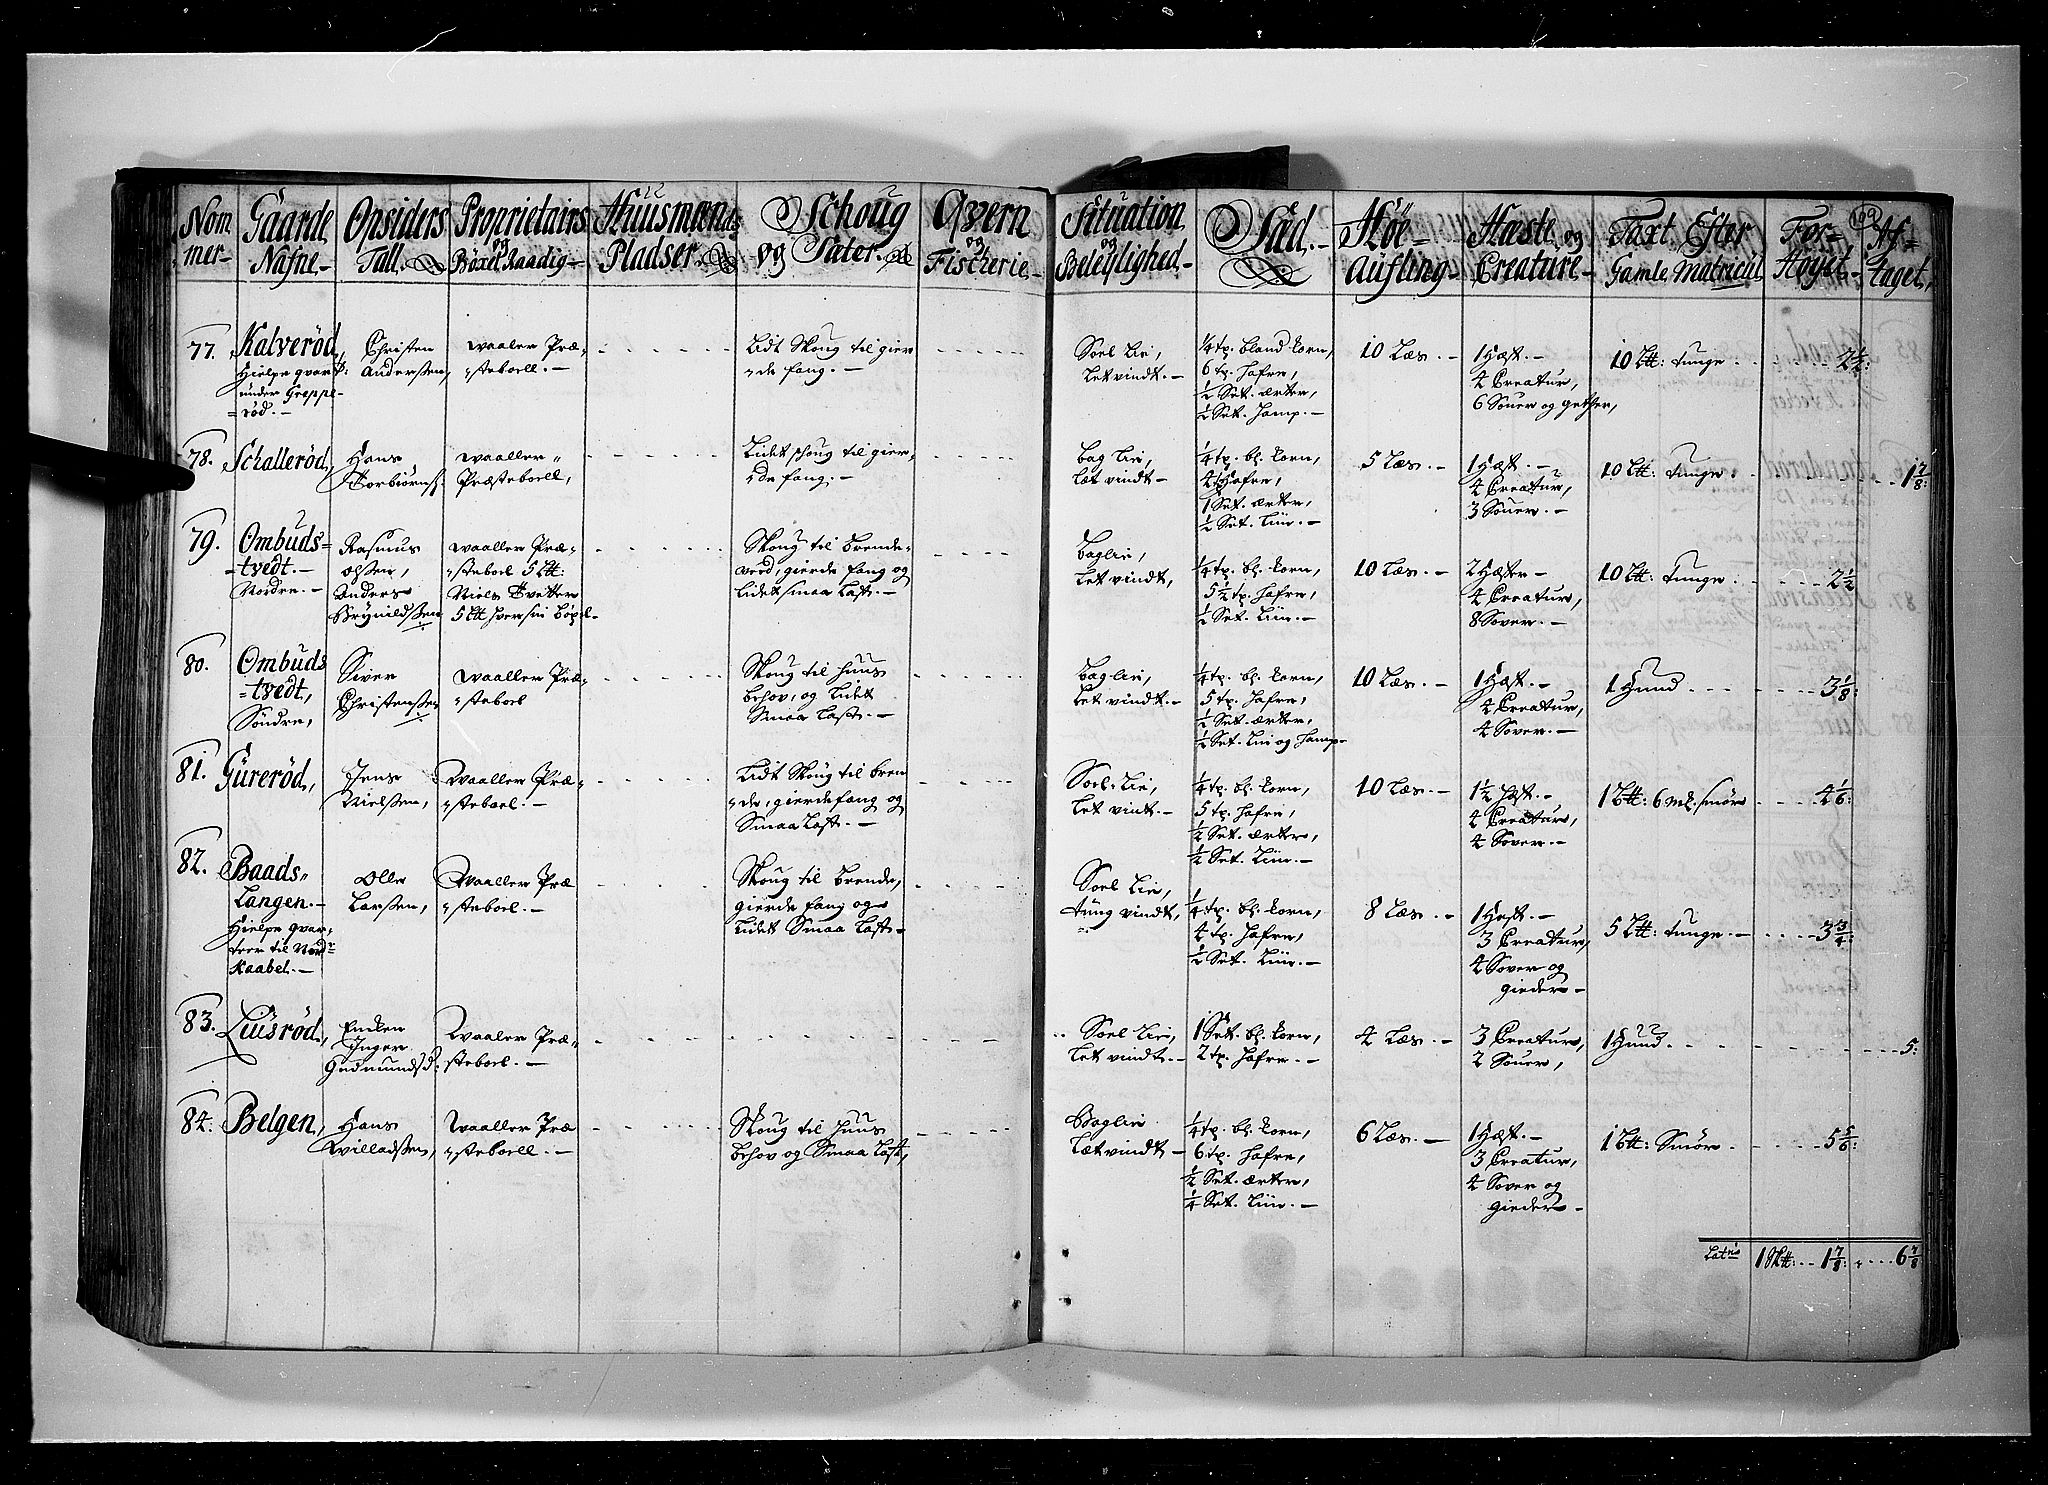 Nom
mer-
Gaarde
Nafne-
Opsiders
Tall.
Proprietairs
og
Böxel Raadig-
Huusmænds
Pladser.
Schoug
og Sæter.
Qvern
og
Fischerie-
Situation
og
Beleylighed-
Sæd.-
Höe-
Aufling-
Hæste og
Creature-
Taxt Efter
Gamle Matricul
For-
Höyet-
109
Af-
taget,
77.
Kalveröd,
Hielpe qvart:
under Greppe-
=röd.-
Christen
Andersen,
Waaler Præ-
steboell.-
Lidt Skoug til gier
de fang.-
Soel Lie,
Let vindt.-
¼ tp. bland korn,
6 tp. Hafre,
½ Set. ærter,
½ Set. Hamp.-
10 Læs.-
1 Hæst.-
4 Creatur,
6 Souer og getter,
10 L℔: tunge
2½:
78.
Schalleröd,
Hans
Torbiörns:
Waaller
Præsteboell,
Lidet skoug til gier,
de fang.-
Bag Lie,
Læt vindt-
¼ tp. bl. korn,
4 tp Hafre,
1 Set. ærter,
½ Set. Liin.-
5 Læs.-
1 Hæst.-
4 Creatur,
3 Souer.-
10 L℔: tunge.
1⅞:
79.
Ombuds-
-tvedt.-
Nordre.-
Rasmus
olssen,
Anders
Brynildssen
Waaller Præ-
steboel 5 L℔:
Niels Tvetter
5 L℔ hver sin böxel-
Skoug til Brende-
ved, gierde fang og
Lidet smaa Last.-
Baglie,
Let vindt,
¼ tp. bl. korn,
5½ tp. Hafre,
½ Set. Liin.-
10 Læs.-
2 Hæster-
4 Creatur,
8 Sover.-
10 L℔: tunge.
2½
80.
Ombuds
=tvedt,
Söndre,
Siver
Christenssen
Waaller Præ-
steboel
Skoug til Huus
behov, og Lidet
Smaa Last.-
Baglie,
Let vindt.-
¼ tp. bl. korn,
5 tp. Hafre,
½ Set. ærter,
½ Set. Lin og Hamp-
10 Læs.-
1 Hæst.-
4 Creatur,
4 Sover.-
1 Huud
3⅛:
81.
Gureröd,
Jens
Nielssen,
Waaller Præ-
steboel.-
Lidt Skoug til bren
de, gierde fang og
Smaa Last.-
Soel Lie,
Let vint.-
¼ tp. bl. korn,
5 tp. Hafre,
½ Set. ærter,
½ Set. Liin.-
10 Læs.-
1½ Hæst.-
4 Creatur,
4 Sover.-
1 L℔: 6 mk. smör
4⅙:
82.
Baads
Langen.-
Hielpe qvar-
teer til Nord
Kaabel.-
Olle
Larssen,
Waaller Præ
steboel.-
Skoug til Brende,
gierde fang og
Lidet Smaa Last-
Soel Lie,
tung vindt,
¼ tp. bl. korn,
4 tp. Hafre,
½ Set. Liin.-
8 Læs.-
1 Hest.-
3 Creatur,
4 Sover og
gieder-
5 L℔: tunge-
3¾:
83.
Luusröd,
Encken
Inger
Gudmundsd:
Waaler Præ-
steboel.-
Soel Lie,
Let vindt-
1 Set. bl. korn,
2 tp. Hafre.-
4 Læs.-
3 Creatur,
2 Souer,
1 Huud
5:
84.
Belgen,
Hans
Willadssen,
Waaller Præ
steboell.-
Skoug til Huus
behov og Smaa Last,
Baglie
Lætvindt-
¼ tp. bl. korn,
6 tp. Hafre,
½ Set. ærter,
¼ Set. Liin.-
6 Læs.-
1 Hæst.-
3 Creatur,
4 Sover og
gieder-
1 L℔: Smör
5⅚:
Latris
1 Sk℔: 1⅞: 6⅞